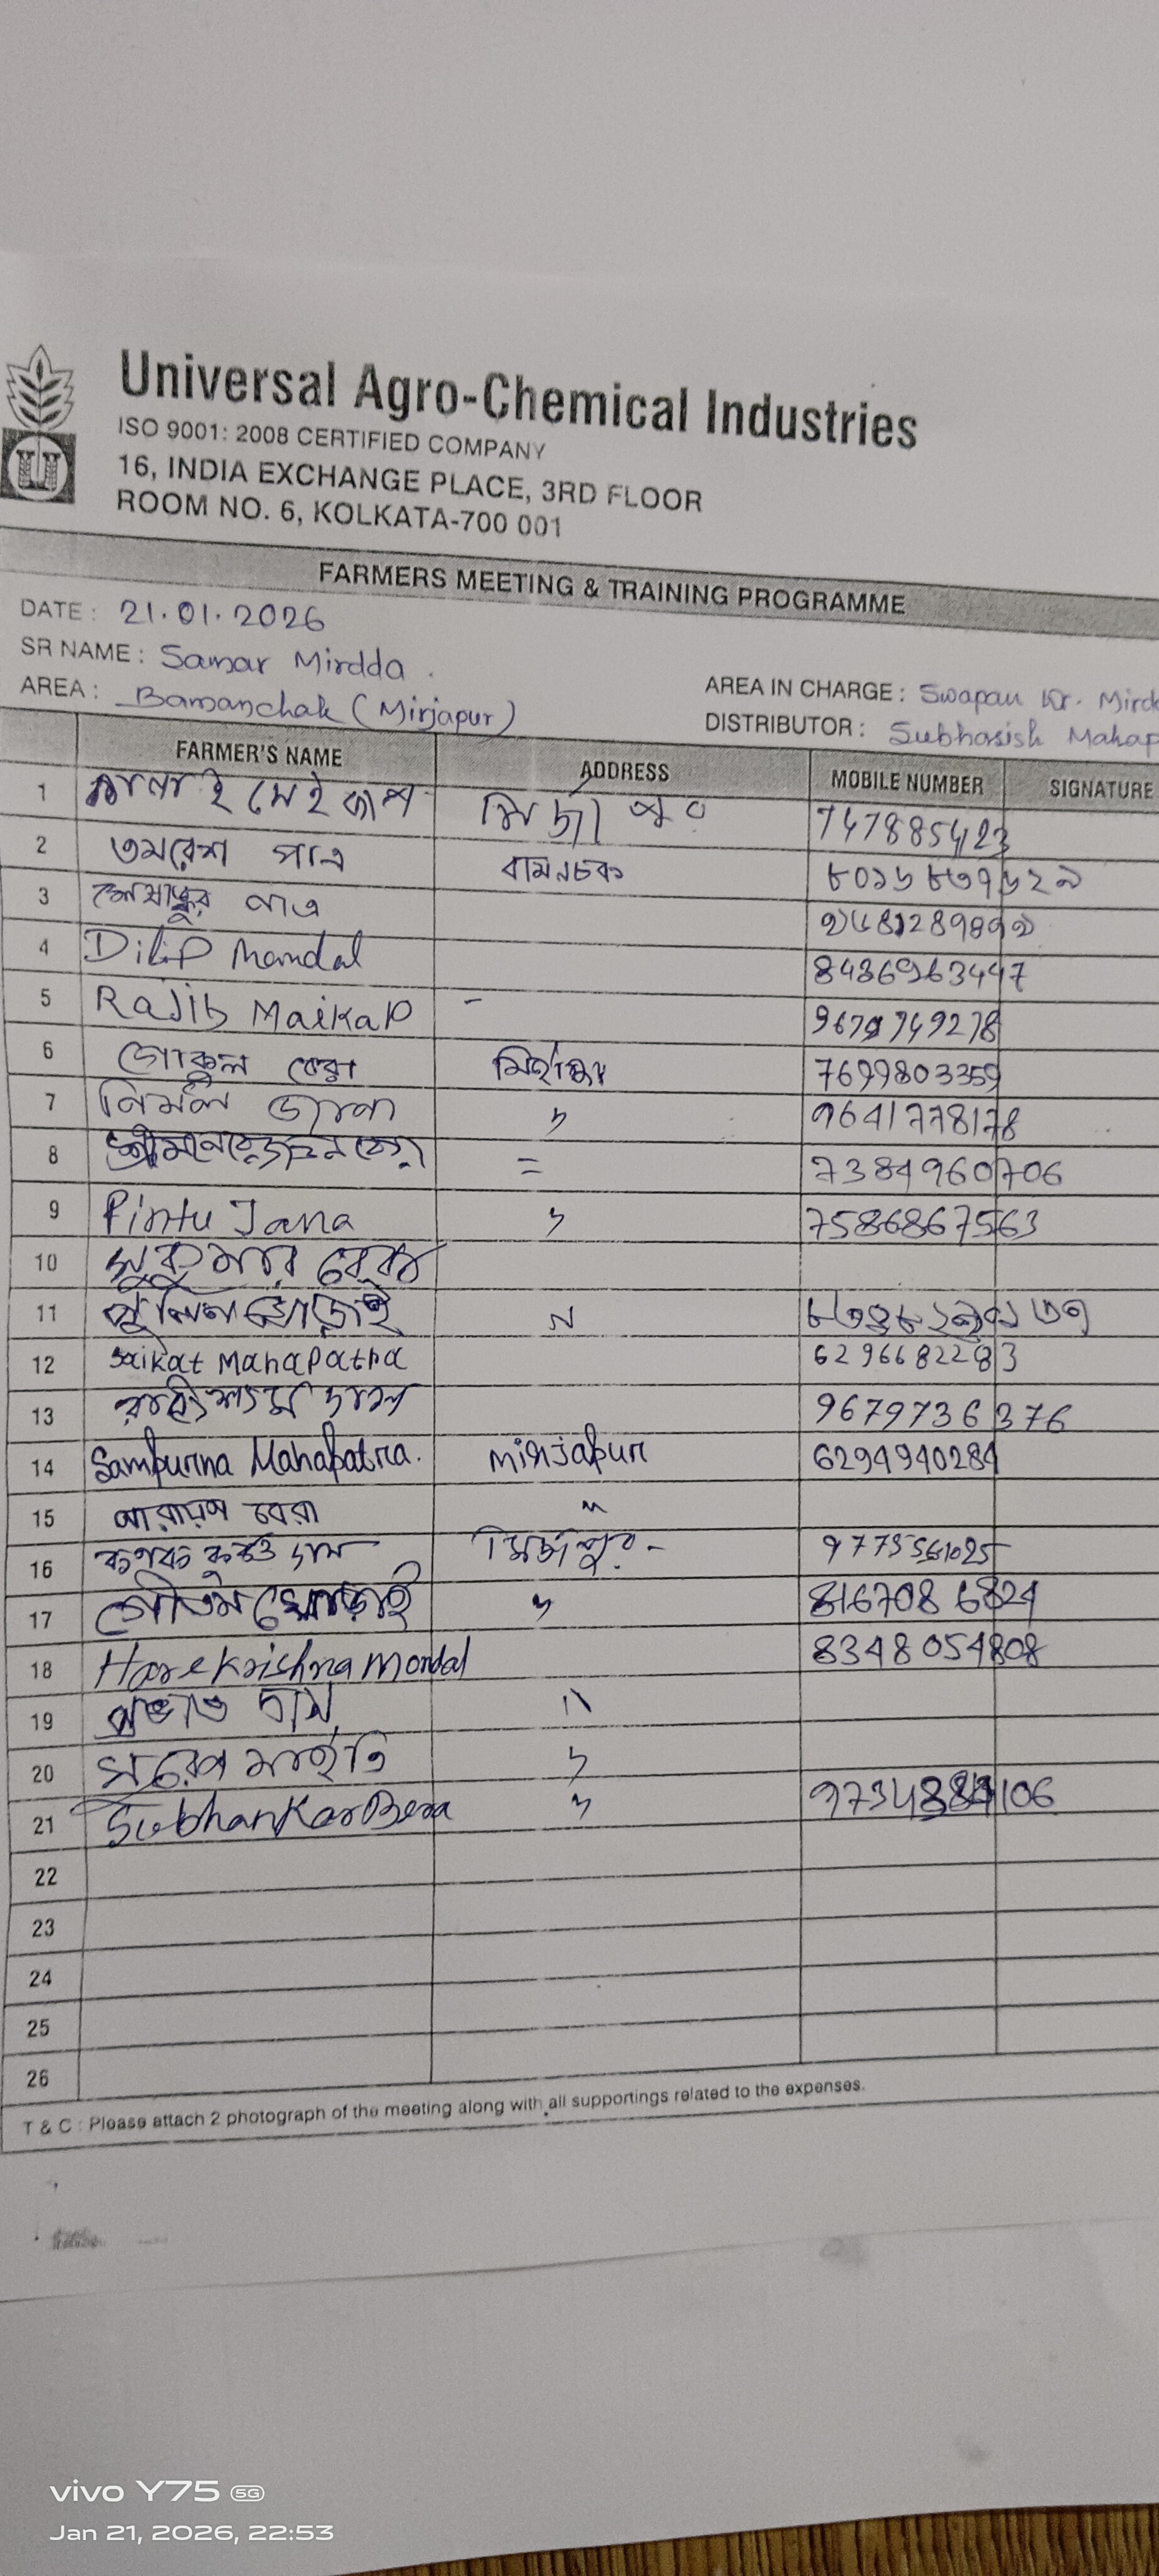 Universal Agro-Chemical Industries
ISO 9001: 2008 CERTIFIED COMPANY
16, INDIA EXCHANGE PLACE, 3RD FLOOR
ROOM NO. 6, KOLKATA-700 001
FARMERS MEETING & TRAINING PROGRAMME
DATE : 21.01.2026
SR NAME : Samar Mirdda .
AREA IN CHARGE : Swapan Kr. Mird
AREA : Bamanchak (Mirjapur)
DISTRIBUTOR : Subhasish Mahap
FARMER'S NAME ADDRESS MOBILE NUMBER SIGNATURE
1 কানাই মেইকাপ মির্জাপুর 7478854123
2 পাত্র বামনচক ৮০১৬৮৩৭৬২৯
3
4 Dilip Mandal 8436963447
5 Rajib Maikap - 9679749278
6 গোকুল বেরা 7699803359
7 নির্মল জানা " 9641778178
8 = 7384960706
9 Pintu Jana " 7586867563
10 সুকুমার বেরা
11 ঘোড়াই
12 Saikat Mahapatra 6296682283
13 9679736376
14 Sampurna Mahapatra. Mirjapur 6294940284
15 নারায়ণ বেরা "
16 দাস মির্জাপুর - 9775561025
17 গৌতম ঘোড়াই " 8167086824
18 Harekrishna Mondal 8348054808
19 প্রভাত দাস "
20 মাইতি "
21 Subhankar Bera "
22
23
24
25
26
T & C : Please attach 2 photograph of the meeting along with all supportings related to the expenses.
vivo Y75 5G
Jan 21, 2026, 22:53